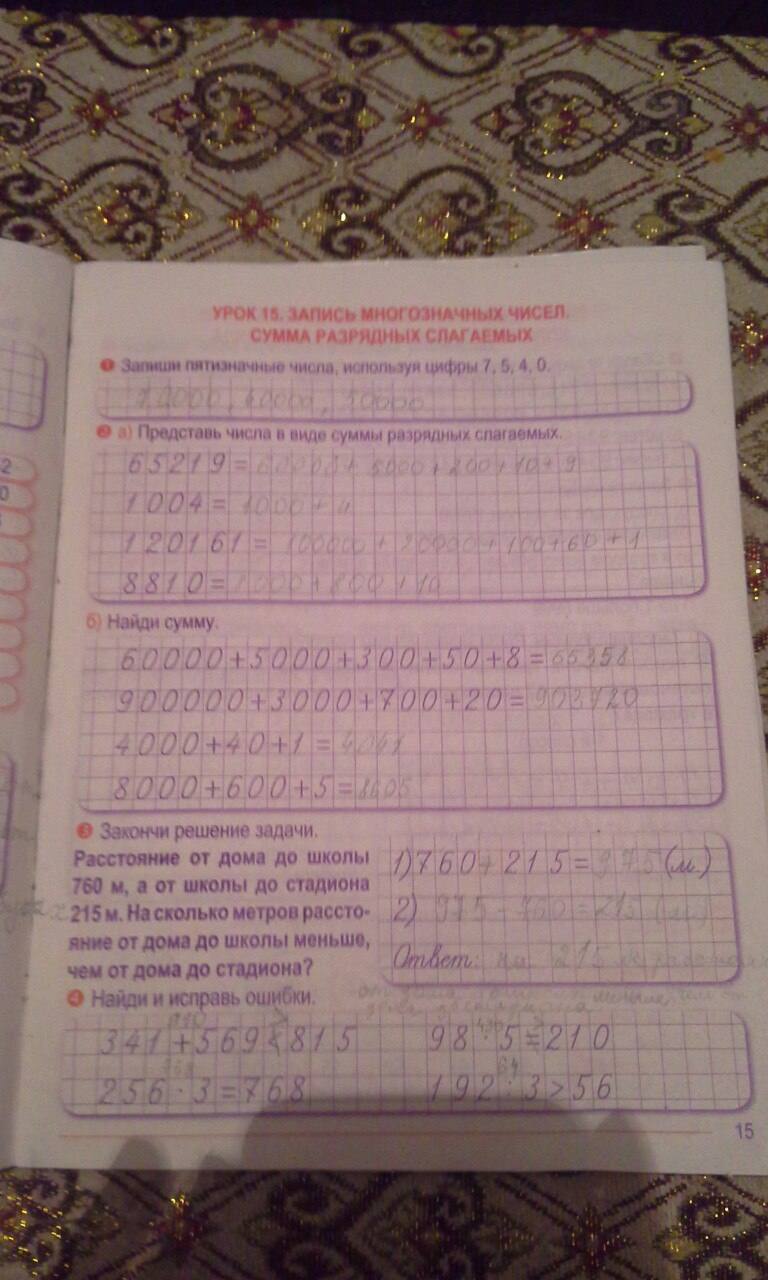 УРОК 15. ЗАПИСЬ МНОГОЗНАЧНЫХ ЧИСЕЛ.
СУММА РАЗРЯДНЫХ СЛАГАЕМЫХ
1 Запиши пятизначные числа, используя цифры 7, 5, 4, 0.
40000, 50000
2 а) Представь числа в виде суммы разрядных слагаемых.
65219 = 60000 + 5000 + 200 + 10 + 9
1004 = 1000 + 4
120161 = 100000 + 20000 + 100 + 60 + 1
8810 = 8000 + 800 + 10
б) Найди сумму.
60000+5000+300+50+8 = 65358
900000+3000+700+20 = 903720
4000+40+1 = 4041
8000+600+5 = 8605
3 Закончи решение задачи.
Расстояние от дома до школы
760 м, а от школы до стадиона
215 м. На сколько метров рассто-
яние от дома до школы меньше,
чем от дома до стадиона?
1) 760 + 215 = 975 (м.)
2) 975 - 760 = 215 (м)
Ответ: на 215 м
меньше, чем от
4 Найди и исправь ошибки.
910 >
341 + 569 < 815
490
98 · 5 = 210
768
256 · 3 = 768
64
192 : 3 > 56
15